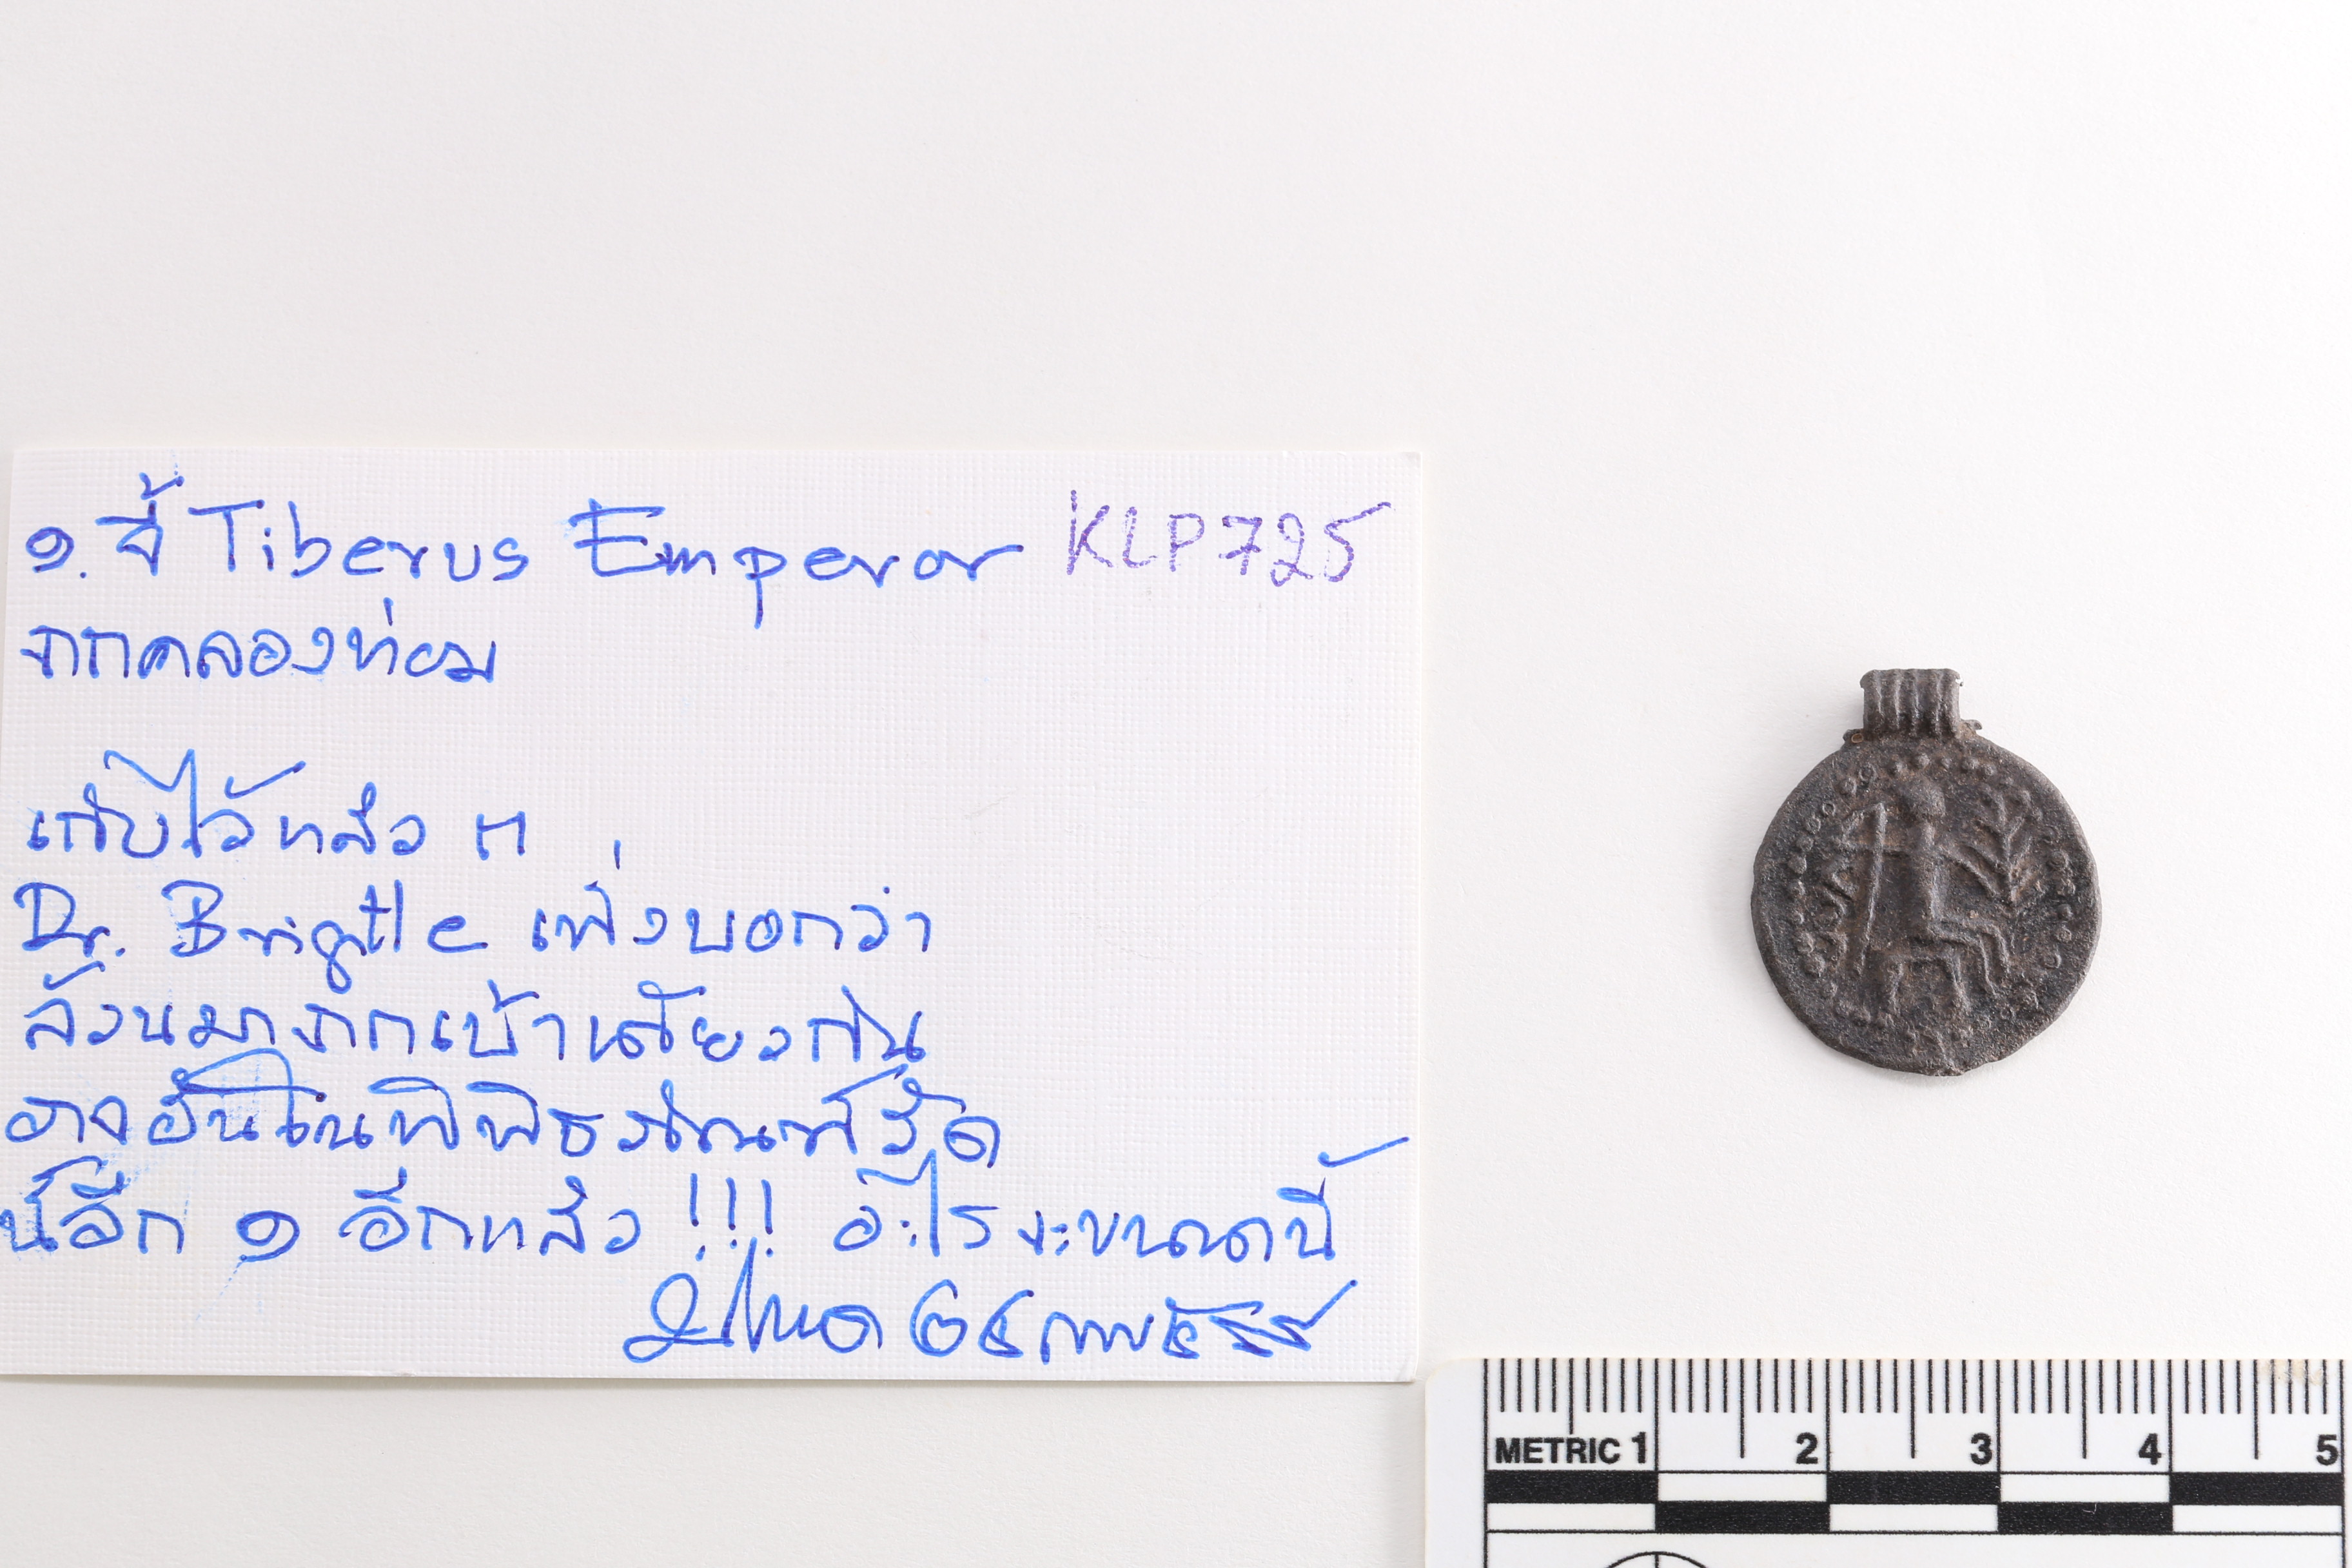 ๑. จี้ Tiberus Emperor KLP725
จากคลองท่อม
เก็บไว้แล้ว ๓
Dr. Brigtte เพิ่งบอกว่า
ล้วนมาจากเบ้าเดียวกัน
อาจ ในพิพิธภัณฑ์วัด
อีก ๑ อีกแล้ว !!! อะไรจะขนาดนี้
METRIC 1 2 3 4 5